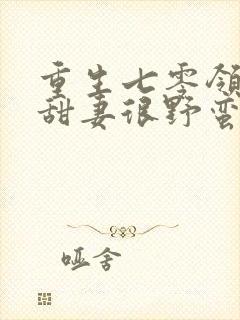 重生七零领
甜妻很野蛮
哑舍